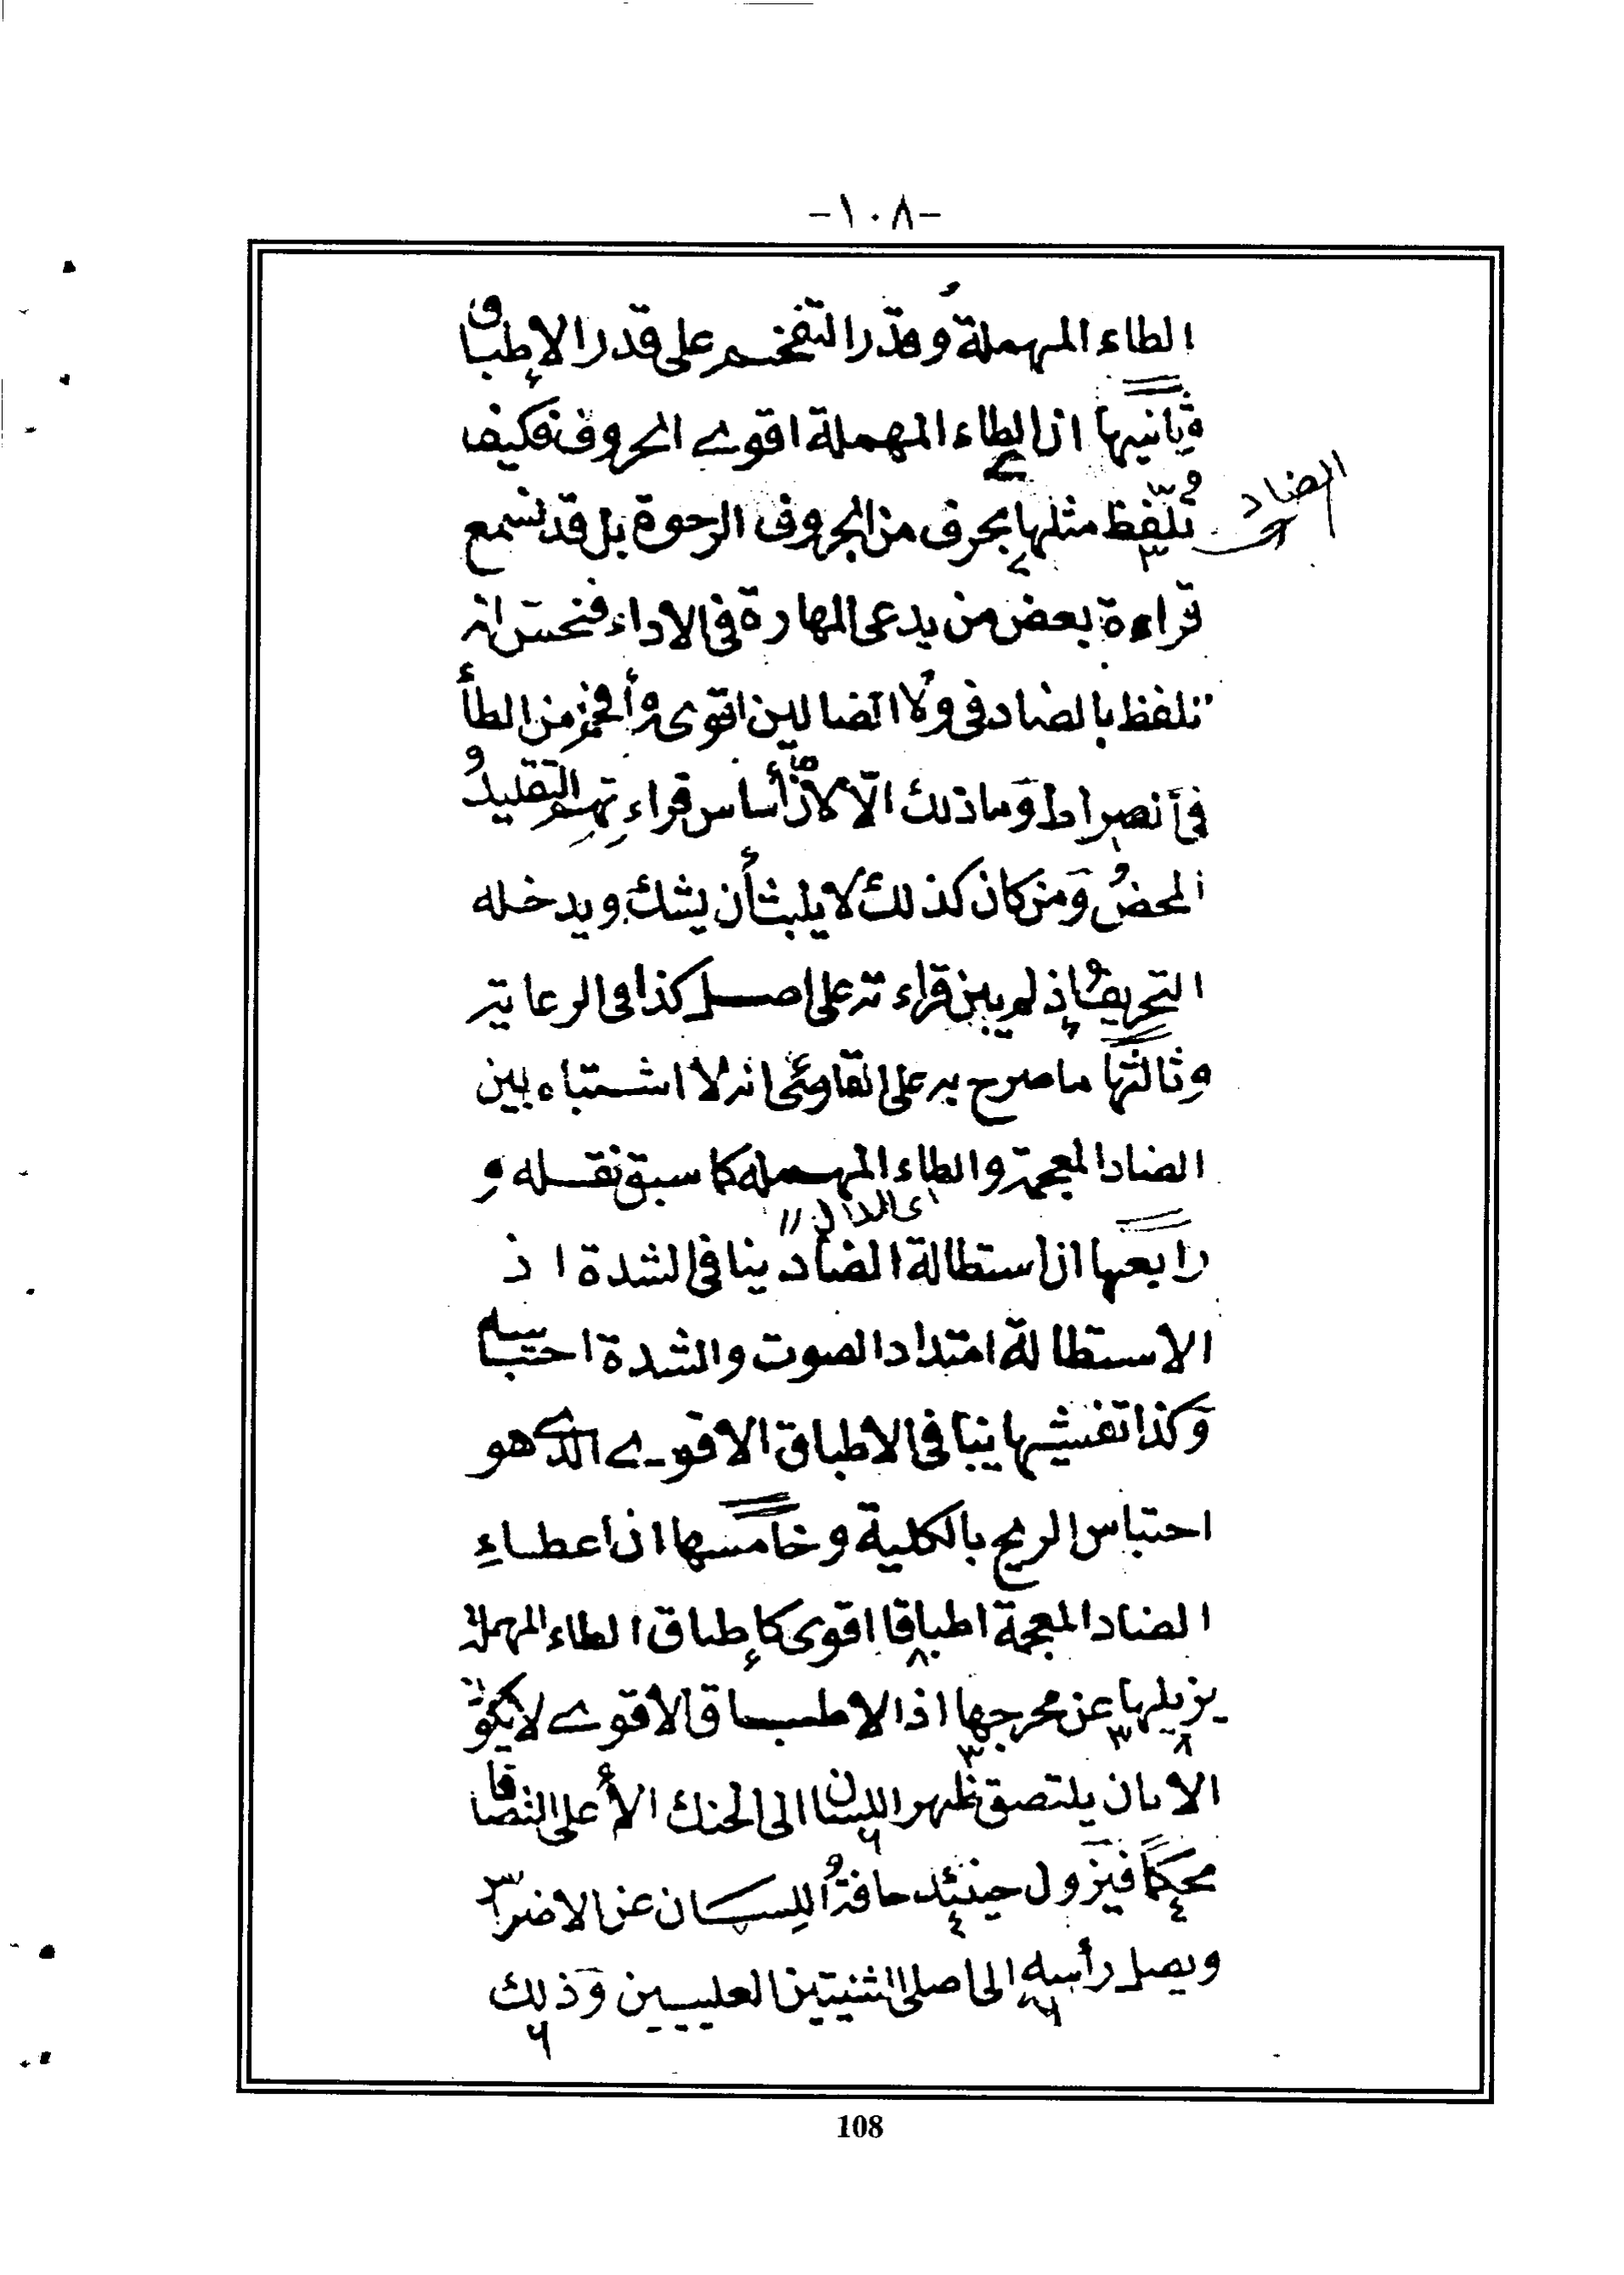 -١٠٨-
الطاء المهملة وقدر التفخيم على قدر الإطباق
وثانيها ان الطاء المهملة اقوى الحروف فكيف
تُلفّظ مثلها بحرف من الحروف الرخوة بل قد نسمع
الضاد
قراءة بعض من يدعى المهارة فى الاداء فنحسّ انه
تلفظ بالضاد فى ولا الضالين اقوى وأفخم من الطأ
فى انصراط وَما ذلك الّا لانّ أساس قراءتهم التقليدُ
المحضُ وَمن كان كذلك لا يلبث أن يشك ويدخله
التحريفُ إذ لم يبن قراءته على اصل كذا فى الرعاية
وثالثها ما صرح به على القارئ انه لا اشتباه بين
الضاد المعجمة والطاء المهمله كما سبق نقله و
اى الدال
رابعها ان استطالة الضاد ينافى الشدة ا ذ
الاستطالة امتداد الصوت والشدة احتباسه
وَكذا تفشيها ينافى الاطباق الاقوى الذى هو
احتباس الريح بالكلية وخامسها ان اعطاءِ
الضاد المعجمة اطباقا اقوى كإطباق الطاء المهملة
يزيلها عن مخرجها اذ الاطباق الأقوى لا يكون
الا بان يلتصق ظهر اللسان الى الحنك الأعلى التصاقا
محكمًا فيزول حينئد حافةُ اللِسان عن الاضراس
ويصل رأسه الى اصلى الثنيتين العلييين وَذلك
108